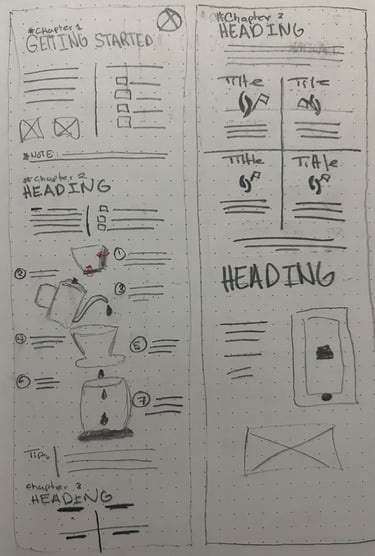 *Chapter 1
GETTING STARTED
*NOTE:
*Chapter 2
HEADING
①
②
③
④
⑤
⑥
⑦
TIPS
Chapter 3
HEADING
*Chapter 3
HEADING
Title Title
Title Title
HEADING